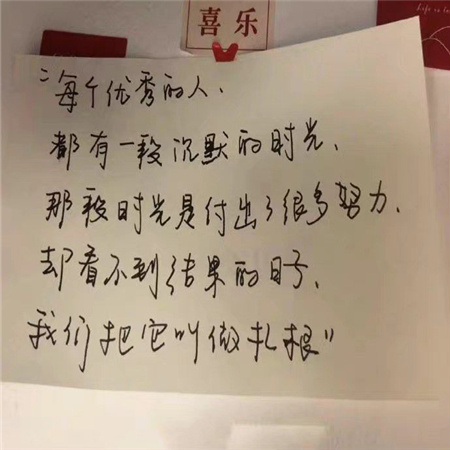 喜乐
Life is
"每个优秀的人、
都有一段沉默的时光、
那段时光是付出了很多努力、
却看不到结果的日子、
我们把它叫做扎根"